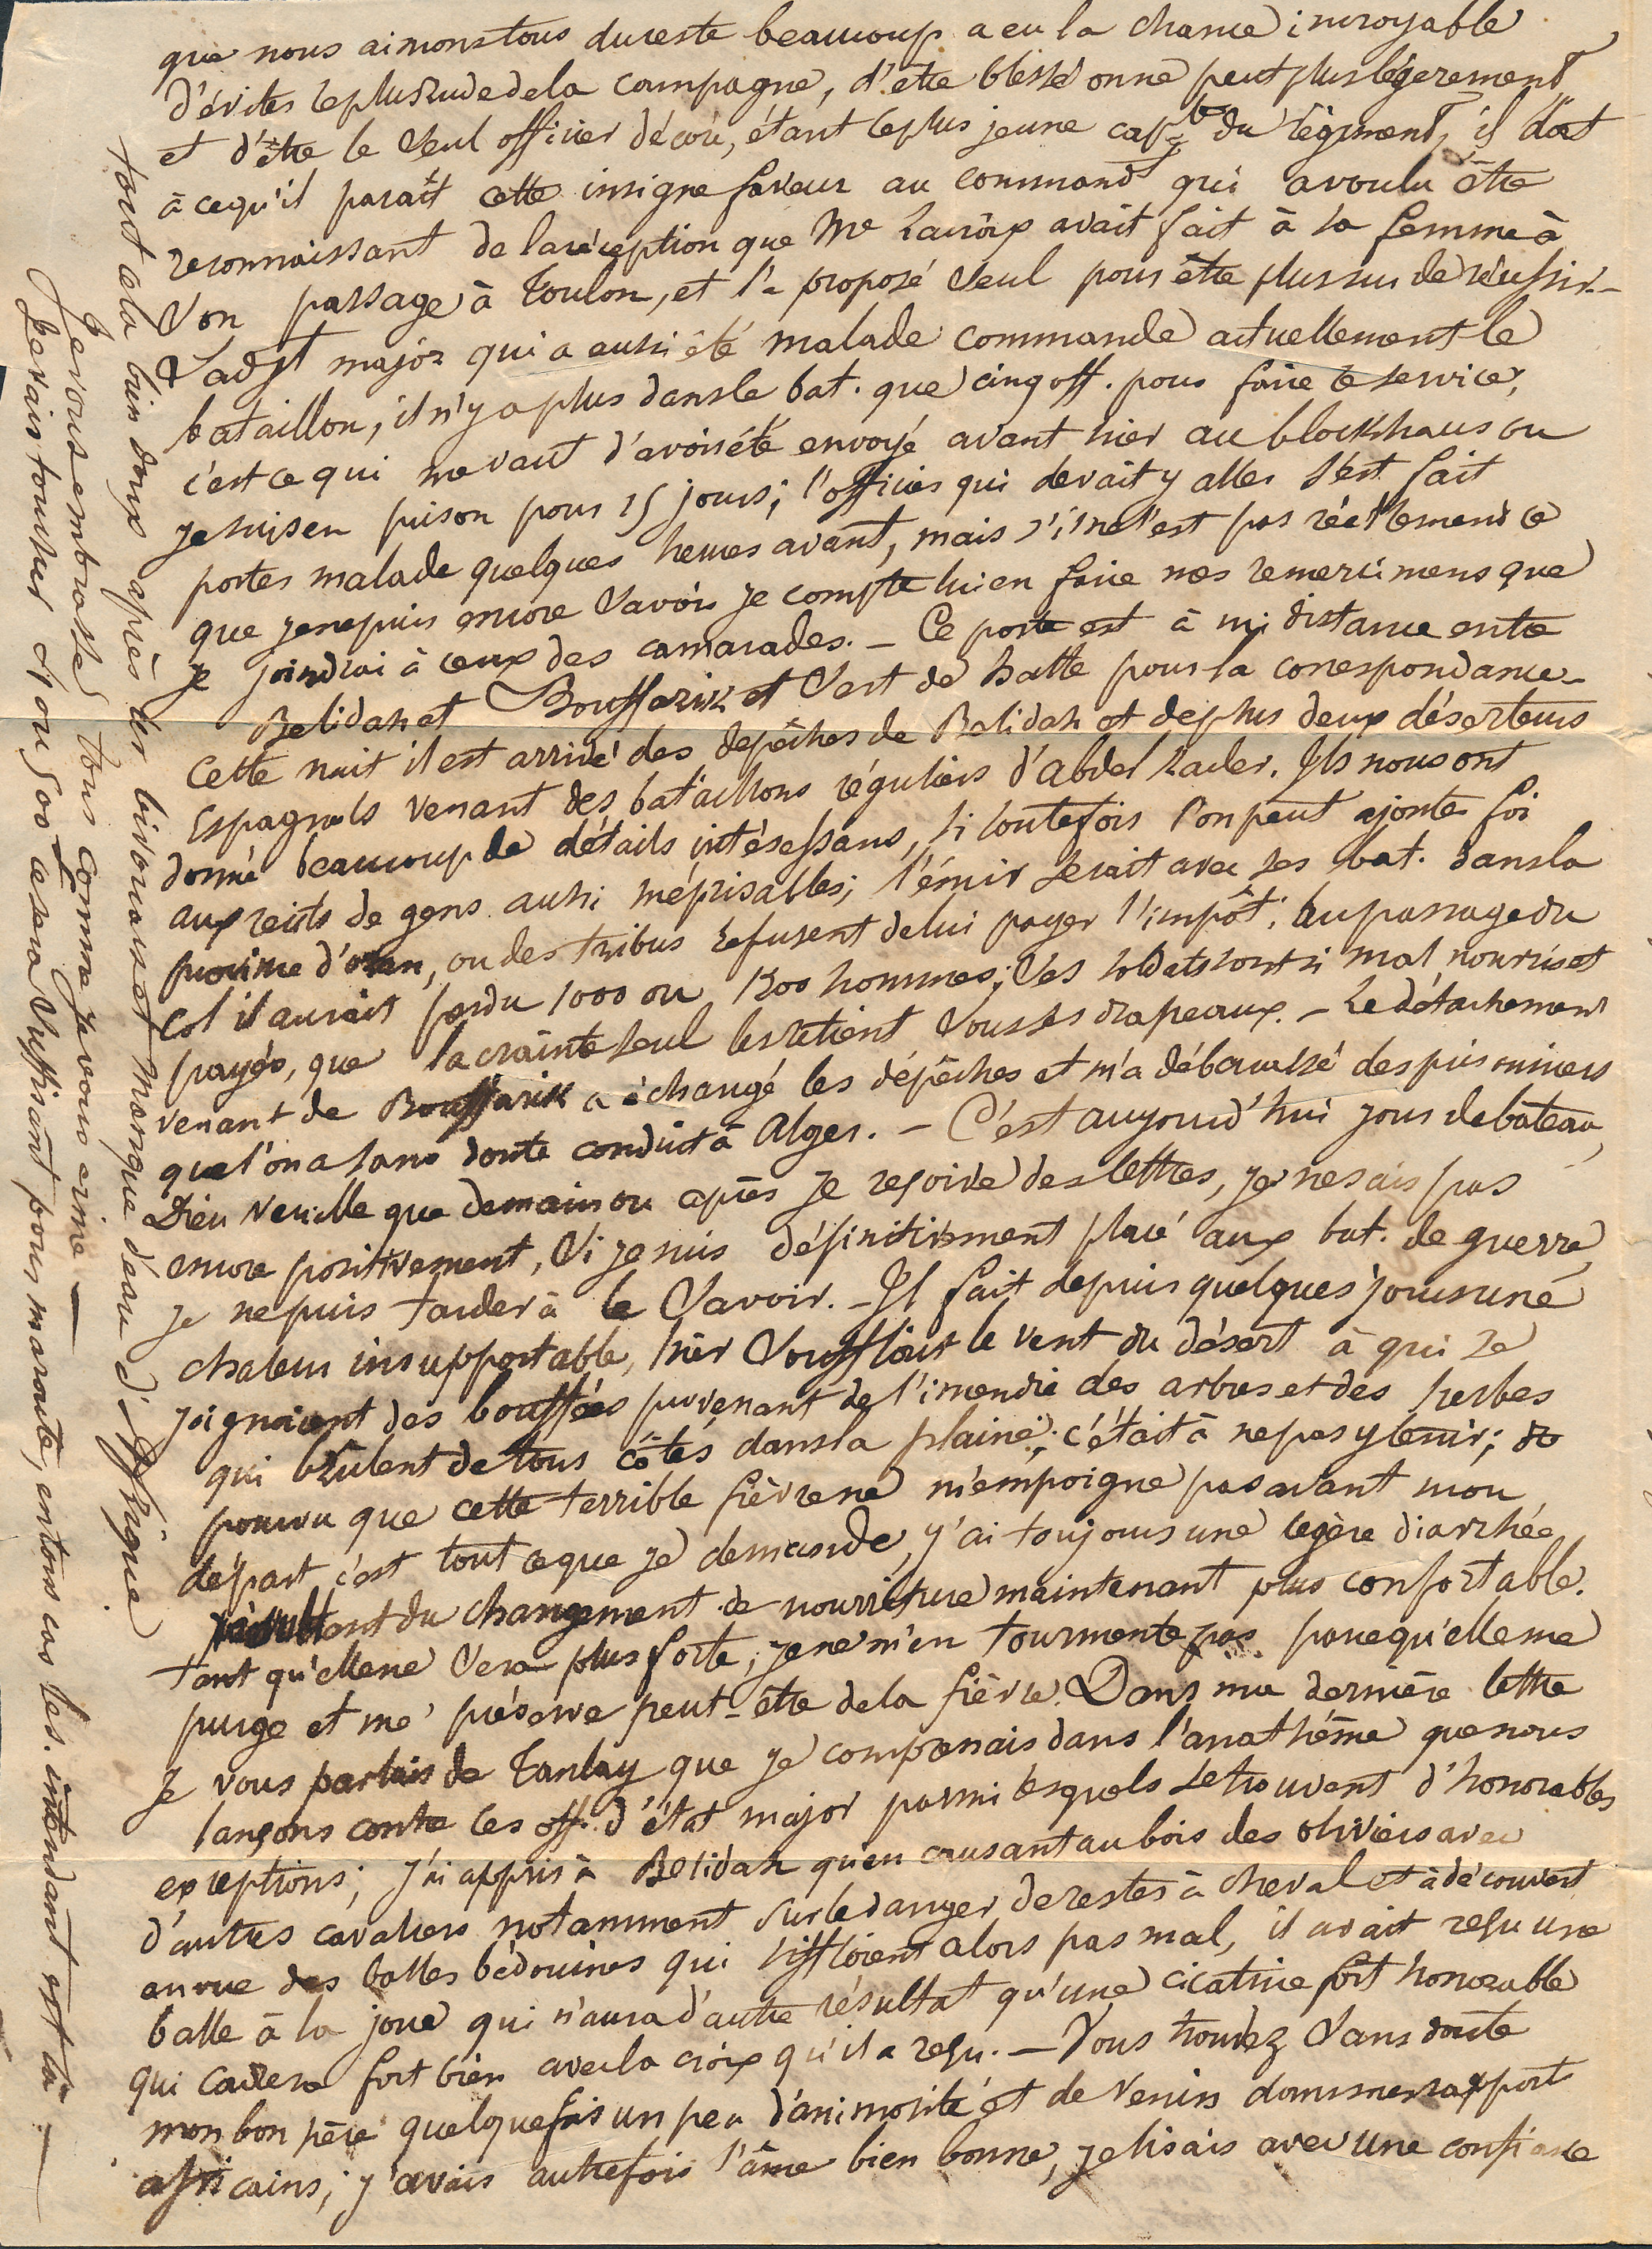 que nous aimons tous du reste beaucoup a eu la chance incroyable
d'éviter le plus rude de la campagne, d'être blessé on ne peut plus légerement
et d'être le seul officier décoré, étant le plus jeune cap.ne du régiment, il doit
à ce qu'il parait cette insigne faveur au commandt qui a voulu être
reconnaissant de la réception que Me Lacroix avait fait à sa femme à
son passage à Toulon, et l'a proposé seul pour être plus sur de réussir. _
L'adjt major qui a aussi été malade commande actuellement le
bataillon, il n'y a plus dans le bat. que cinq off. pour faire le service,
c'est ce qui me vaut d'avoir été envoyé avant hier au blockhaus ou
je suis en prison pour 15 jours; l'officier qui devait y aller s'est fait
porter malade quelques heures avant, mais s'il ne l'est pas réellement ce
que je ne puis encore savoir je compte lui en faire mes remercimens que
je joindrai à ceux des camarades. _ Ce poste est à mi distance entre
Belidah et Bouffarik et sert de halte pour la correspondance _
Cette nuit il est arrivé des depêches de Belidah et de plus deux déserteurs
Espagnols venant des bataillons réguliers d'abdel Kader. Ils nous ont
donné beaucoup de détails intéressans, si toutefois l'on peut ajouter foi
aux récits de gens aussi méprisables; l'émir serait avec ses bat. dans la
province d'oran, ou des tribus refusent de lui payer l'impôt. au passage du
col il aurait perdu 1000 ou 1200 hommes; ses soldats sont si mal nourris et
payés, que la crainte seul les retient sous ses drapeaux. _ Le détachement
venant de Bouffarik a échangé les dépêches et m'a débarrassé des prisonniers
que l'on a sans doute conduit à Alger. _ C'est aujourd'hui jour de bateau,
Dieu veuille que demain ou après je reçoive des lettres, je ne sais pas
encore positivement, si je suis définitivement placé aux bat. de guerre,
je ne puis tarder à le savoir. _ Il fait depuis quelques jours une
chaleur insupportable, hier soufflait le vent du désert à qui se
joignaient des bouffées provenant de l'incendie des arbres et des herbes
qui brûlent de tous côtés dans la plaine; c'était à ne pas y tenir;
pourvu que cette terrible fièvre ne m'empoigne pas avant mon
départ c'est tout ce que je demande, j'ai toujours une legère diarrhée
résultant du changement de nourriture maintenant plus confortable.
tant qu'elle ne sera plus forte, je ne m'en tourmente pas parcequ'elle me
purge et me préserve peut-être de la fièvre. Dans ma dernière lettre
je vous parlais de Tanlay que je comprenais dans l'anathême que nous
lançons contre les off. d'état major parmi lesquels se trouvent d'honorables
exceptions; j'ai appris à Belidah qu'en causant au bois des oliviers avec
d'autres cavaliers notamment sur le danger de rester à cheval et à découvert
en vue des balles bédouines qui siffloient alors pas mal, il avait reçu une
balle à la joue qui n'aura d'autre résultat qu'une cicatrice fort honorable
qui cadrera fort bien avec la croix qu'il a reçu. _ Vous trouvez sans doute
mon bon père quelquefois un peu d'animosité et de venin dans mes rapports
africains; j'avais autrefois l'âme bien bonne, je lisais avec une confiance
tout cela bien doux après les bivouacs et manque d'eau d'Afrique
Je vous embrasse tous comme je vous aime _
Je vais toucher 4 ou 500 ce sera suffisant pour ma route, en tous cas les. intendant est là _